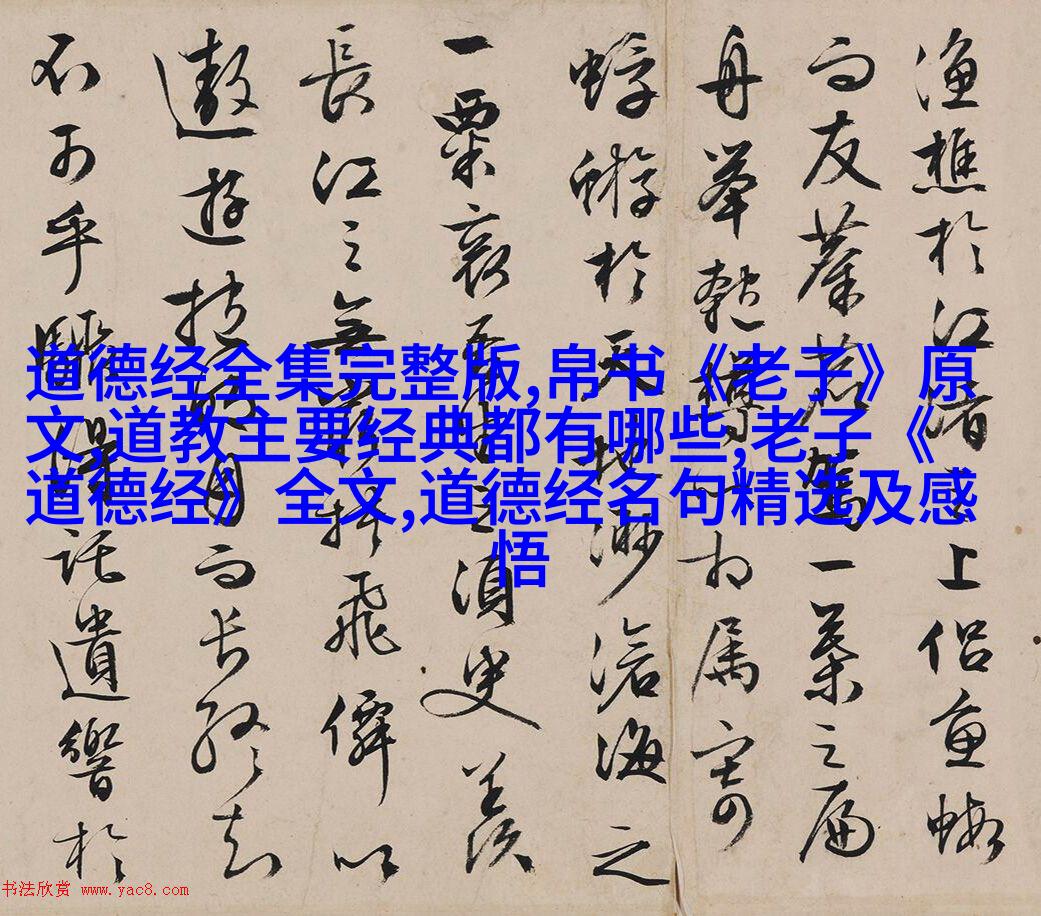 道德经全集完整版,帛书《老子》原
文,道教主要经典都有哪些,老子《
道德经》全文,道德经名句精选及感
悟
渔樵於江渚之上侣鱼蝦
而友麋鹿駕一葉之扁
舟舉匏樽以相属寄
蜉蝣於天地渺滄海之
一粟哀吾生之須臾羨
長江之無窮挾飛僊以
遨遊抱明月而長終知
不可乎驟得託遺響於
书法欣赏 www.yac8.com